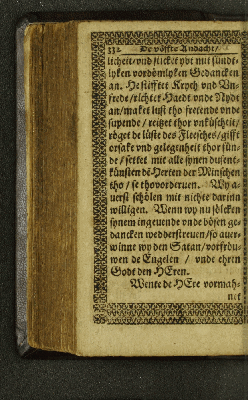 332 De vöffte Andacht/
licheit/vnd flicket ydt mit sündt-
lyken vordömlyken Gedancken
an. He stifftet Krych vnd Vn-
frede/richtet Haedt vnde Nydt
an/maket lust tho fretende vnde
supende/reitzet thor vnküscheit/
röget de lüste des Fleesches/gifft
orsake vnd gelegenheit thor sün-
de/settet mit alle synen dusent-
künsten de Herten der Minschen
tho/se tho vorderuen. Wy a-
uerst schölen mit nichte darinn
willigen. Wenn wy nu sölcken
synem ingeuende vnde bösen ge-
dancken wedderstreuen/so auer-
winne wy den Satan/vorfröu-
wen de Engelen/vnde ehren
Godt den HEren.
Wente de HEre vormah-
net